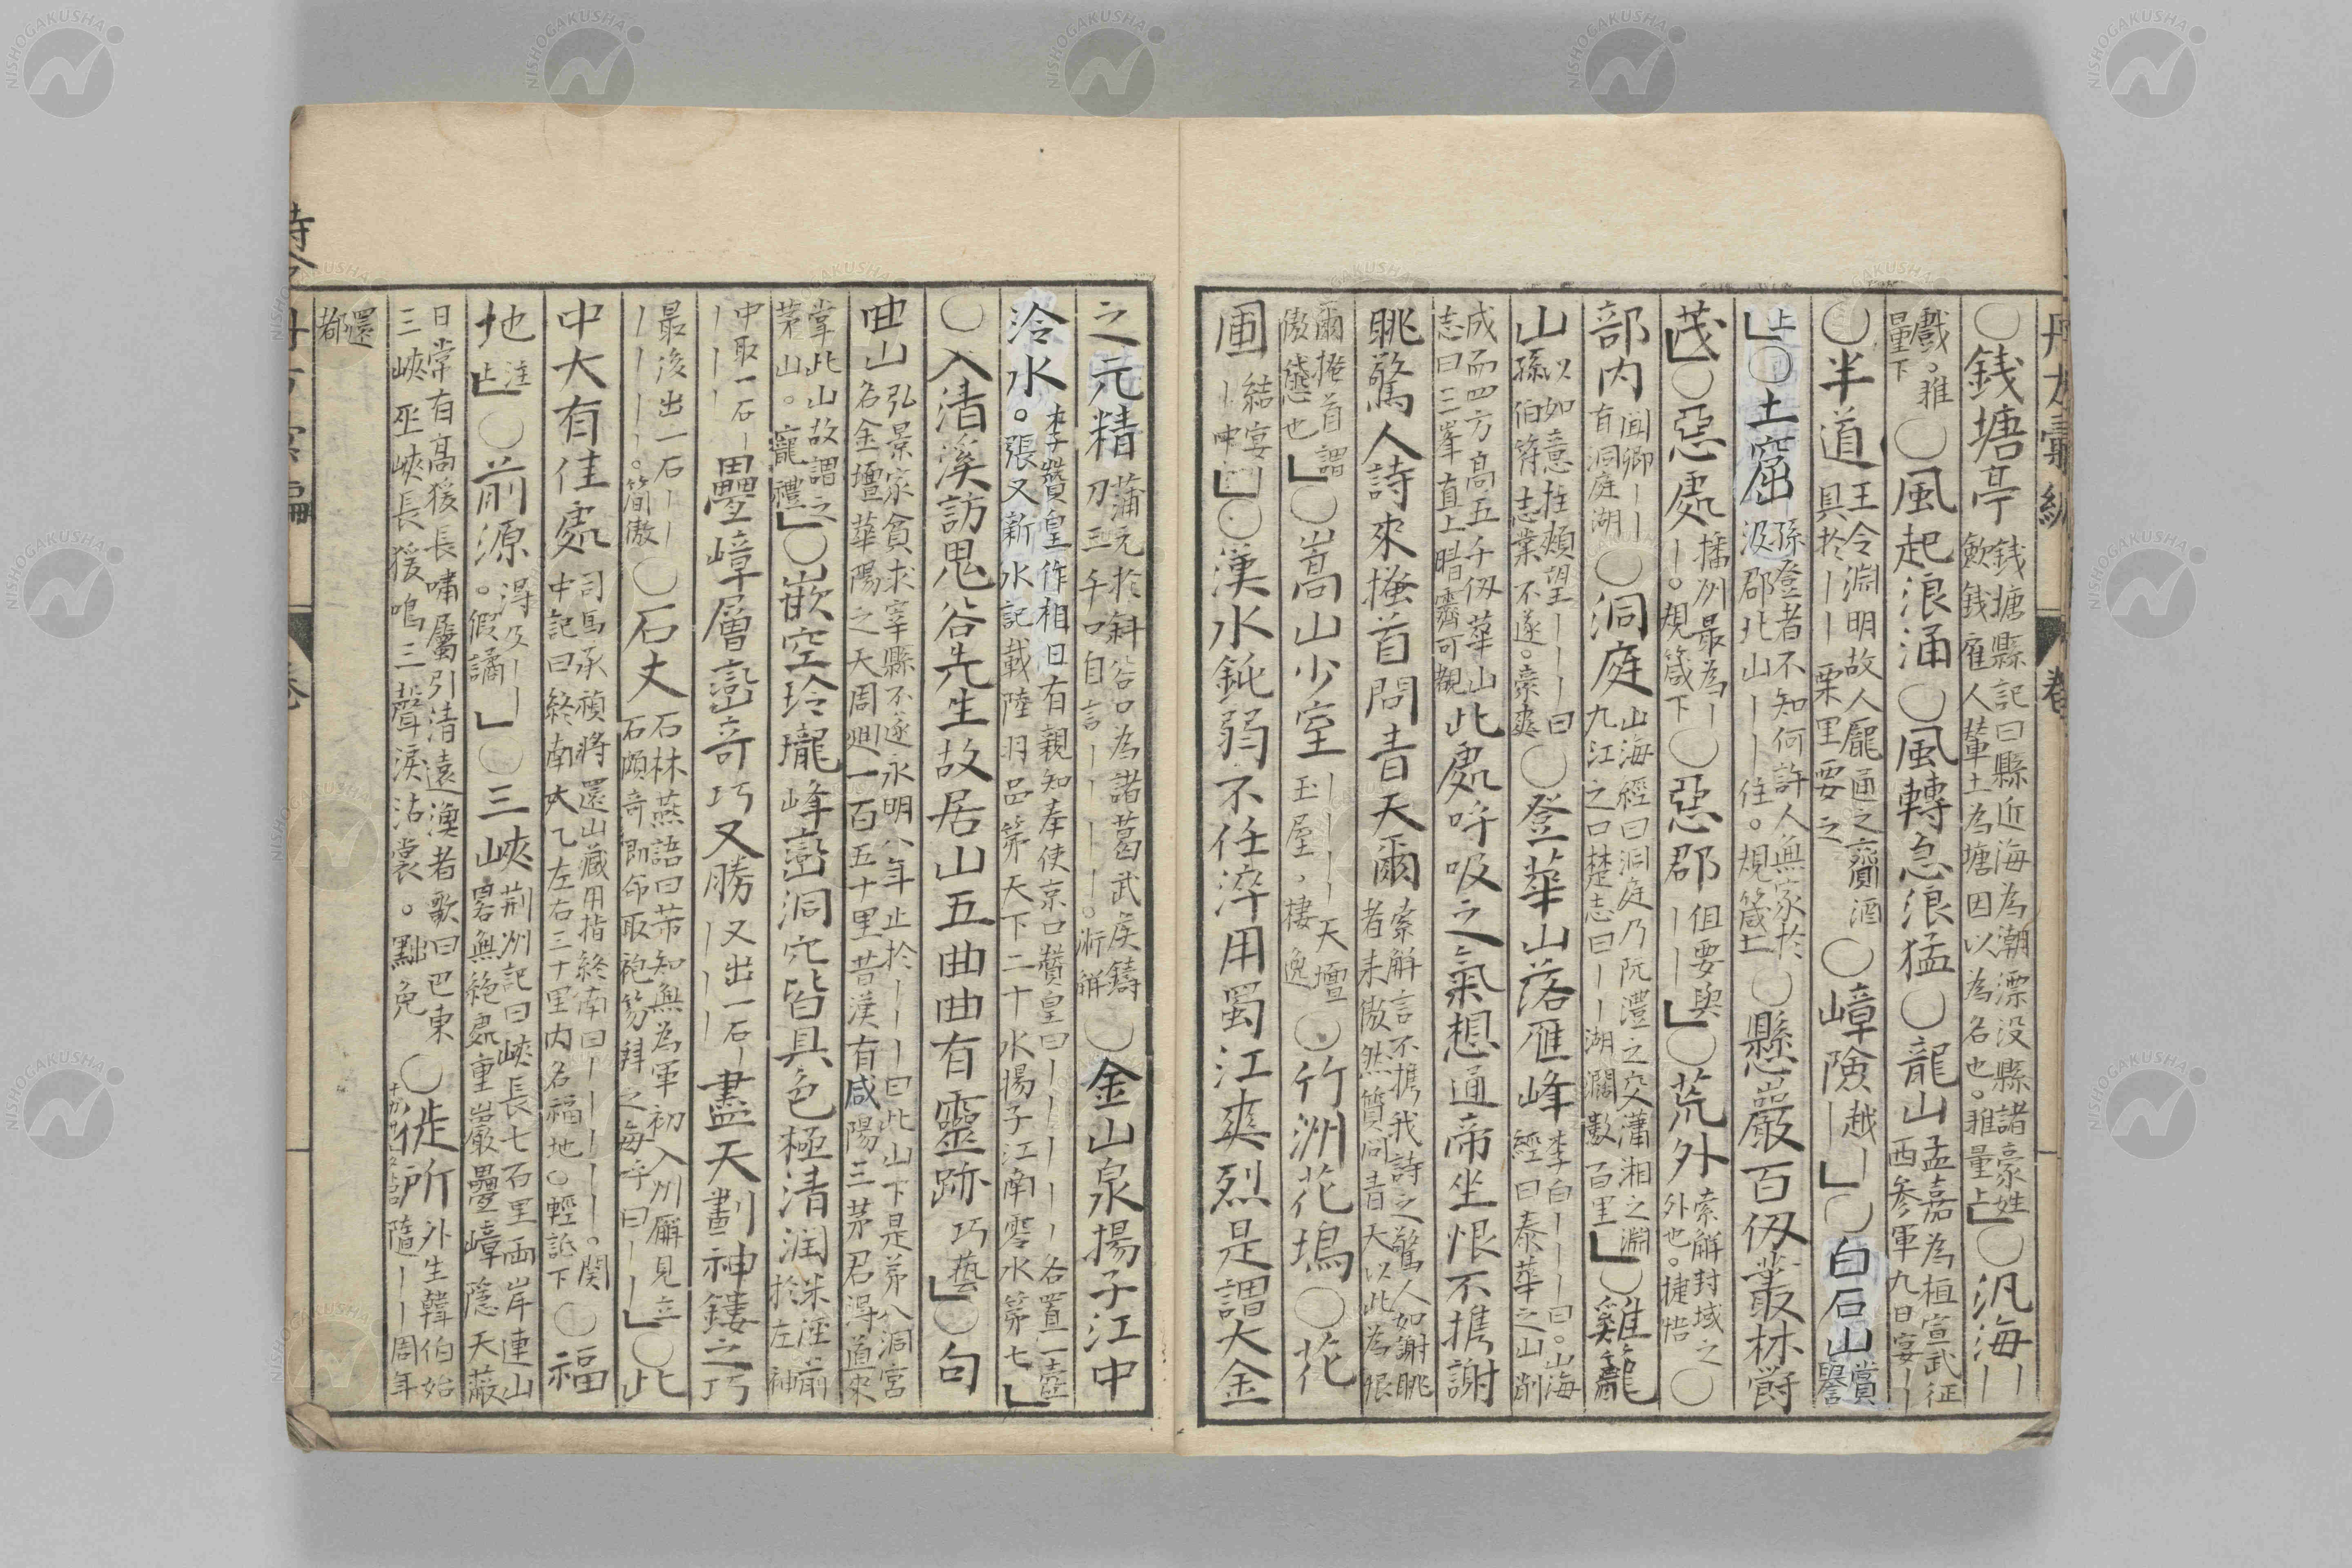 ○銭塘亭 銭塘縣記曰縣近海為潮漂没縣諸豪姓
歛銭雇人輦土為塘因以為名也。雅量上」○汎海ーー
戲。雅
量下 ○風起浪涌○風轉急浪猛○龍山 孟嘉為桓宣武征
西参軍九日宴ーー
○半道 王令淵明故人龐通之齎酒
具於ーー栗里要之 ○嶂險 越ーー」○白石山 賞
譽
上」○土窟 孫登者不知何許人無家於
汲郡北山ーー住。規箴上 ○懸巖百仭叢林欝
茂」○惡處 播州最為ー
ー。規箴下 ○惡郡 但要與
ーー」○荒外 索解封域之
外也。捷悟 ○
部内 聞卿ーー
有洞庭湖 ○洞庭 山海經曰洞庭乃沅澧之交瀟湘之淵
九江之口楚志曰ーー湖濶數百里」○雞籠
山 以如意拄頬望ーーー曰
孫伯符志業不遂。豪爽 ○登華山落雁峰 李白ーーー曰。山海
經曰泰華之山削
成而四方高五千仭華山
志曰三峯直上晴霽可觀 此處呼吸之氣想通帝坐恨不携謝
眺驚人詩來搔首問青天爾 索解言不携我詩之驚人如謝眺
者来傲然質問青天以此為恨
爾搔首謂
傲盛也」○嵩山少室 ーーーー天壇
玉屋。棲逸 ○竹洲花塢○花
圃 結宴
ー中」○漢水鈍弱不任淬用蜀江爽烈是謂大金
之元精 蒲元於斜谷口為諸葛武侯鑄
刀三千口自言ーーーー。術解 ○金山泉揚子江中
冷水 李贊皇作相日有親知奉使京口贊皇曰ーーーーー各置一壺
。張又新水記載陸羽品第天下二十水揚子江南零水第七」
○入清溪訪鬼谷先生故居山五曲曲有靈跡 巧藝」○句
曲山 弘景家貧求宰縣不遂永明八年止於ーーー曰此山下是第八洞宮
名金壇華陽之天周廻一百五十里昔漢有咸陽三茅君得道來
掌此山故謂之
茅山。寵禮」○嵌空玲瓏峰巒洞穴皆具色極清潤 米涇前
於左袖
中取一石ー
ーー 疊嶂層巒奇巧又勝 又出一石ー
ーーー 盡天劃神鏤之巧
最後出一石ーー
ーーーー。簡傲 ○石丈 石林燕語曰芾知無為軍初入州廨見立
石頗奇即命取袍笏拜之每乎曰ーー」○此
中大有佳處 司馬承禎將還山藏用指終南曰ーーーーー。関
中記曰終南太乙左右三十里内名福地○輕詆下 ○福
地 注
上」○前源 得及ーー
。假譎」○三峽 荊州記曰峽長七百里両岸連山
畧無絶處重巖疊嶂隱天蔽
日常有高猨長嘯屬引清遠漁者歌曰巴東
三峽巫峽長猨鳴三聲淚沾裳。黜免 ○徙所 外生韓伯始
隨ーー周年
還
都